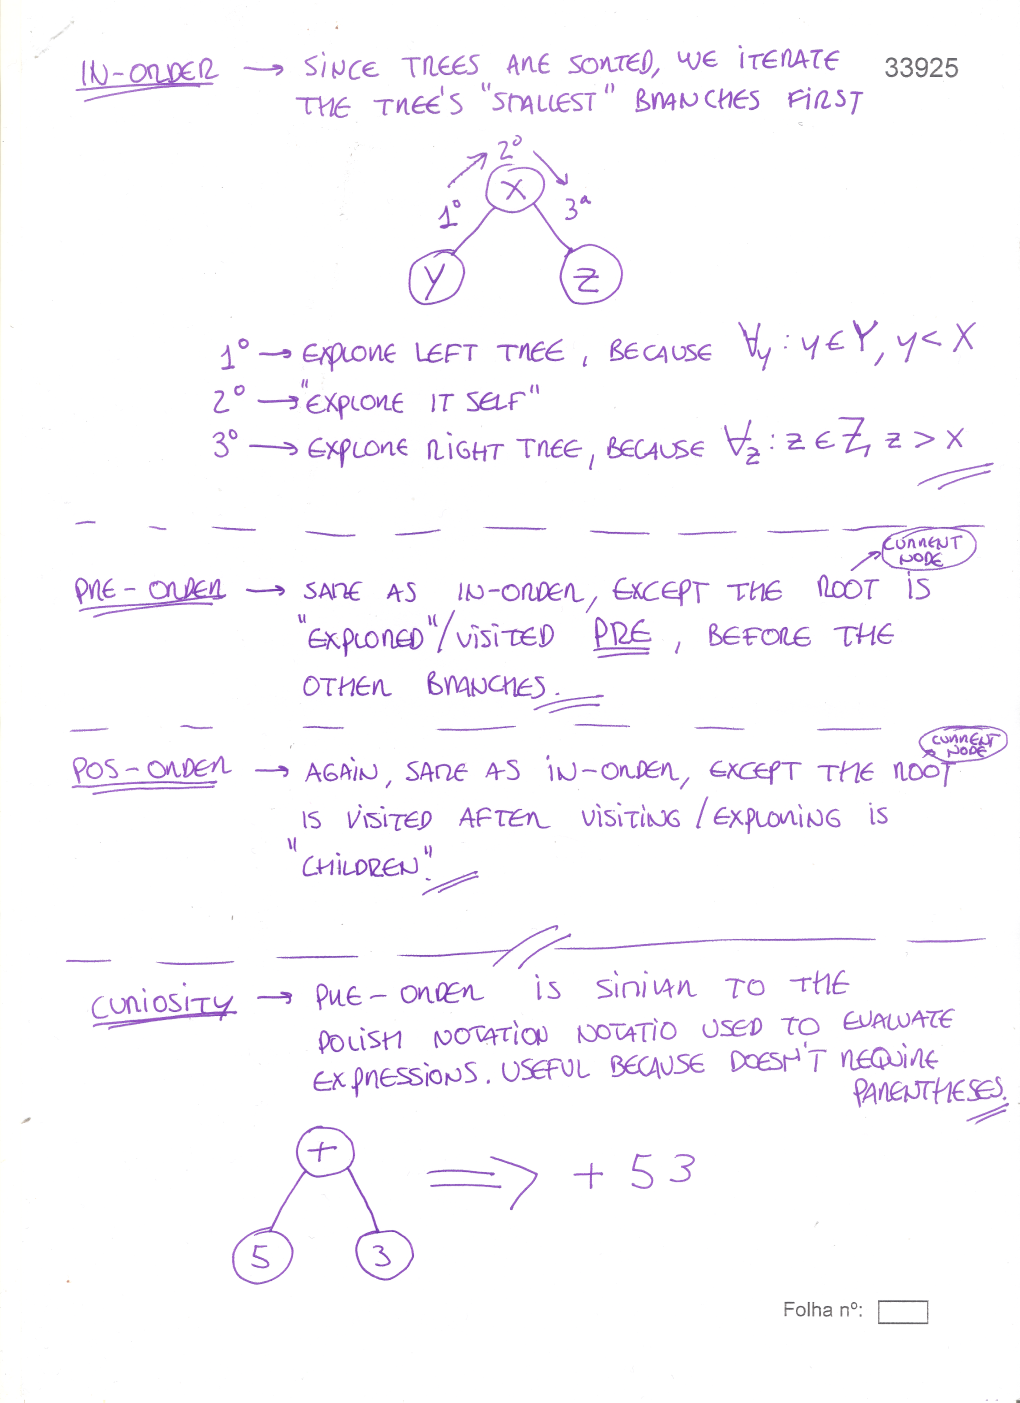 IN-ORDER → SINCE TREES ARE SORTED, WE ITERATE
33925
THE TREE'S "SMALLEST" BRANCHES FIRST
2º
X
1º
3ª
Y
Z
1º → EXPLORE LEFT TREE, BECAUSE ∀y : y ∈ Y, y < X
2º → "EXPLORE IT SELF"
3º → EXPLORE RIGHT TREE, BECAUSE ∀z : z ∈ Z, z > X
CURRENT
NODE
PRE-ORDER → SAME AS IN-ORDER, EXCEPT THE ROOT IS
"EXPLORED"/VISITED PRE, BEFORE THE
OTHER BRANCHES.
CURRENT
NODE
POS-ORDER → AGAIN, SAME AS IN-ORDER, EXCEPT THE ROOT
IS VISITED AFTER VISITING/EXPLORING IS
"CHILDREN".
CURIOSITY → PRE-ORDER IS SIMILAR TO THE
POLISH NOTATION NOTATIO USED TO EVALUATE
EXPRESSIONS. USEFUL BECAUSE DOESN'T REQUIRE
PARENTHESES.
+
⇒ + 5 3
5
3
Folha nº: